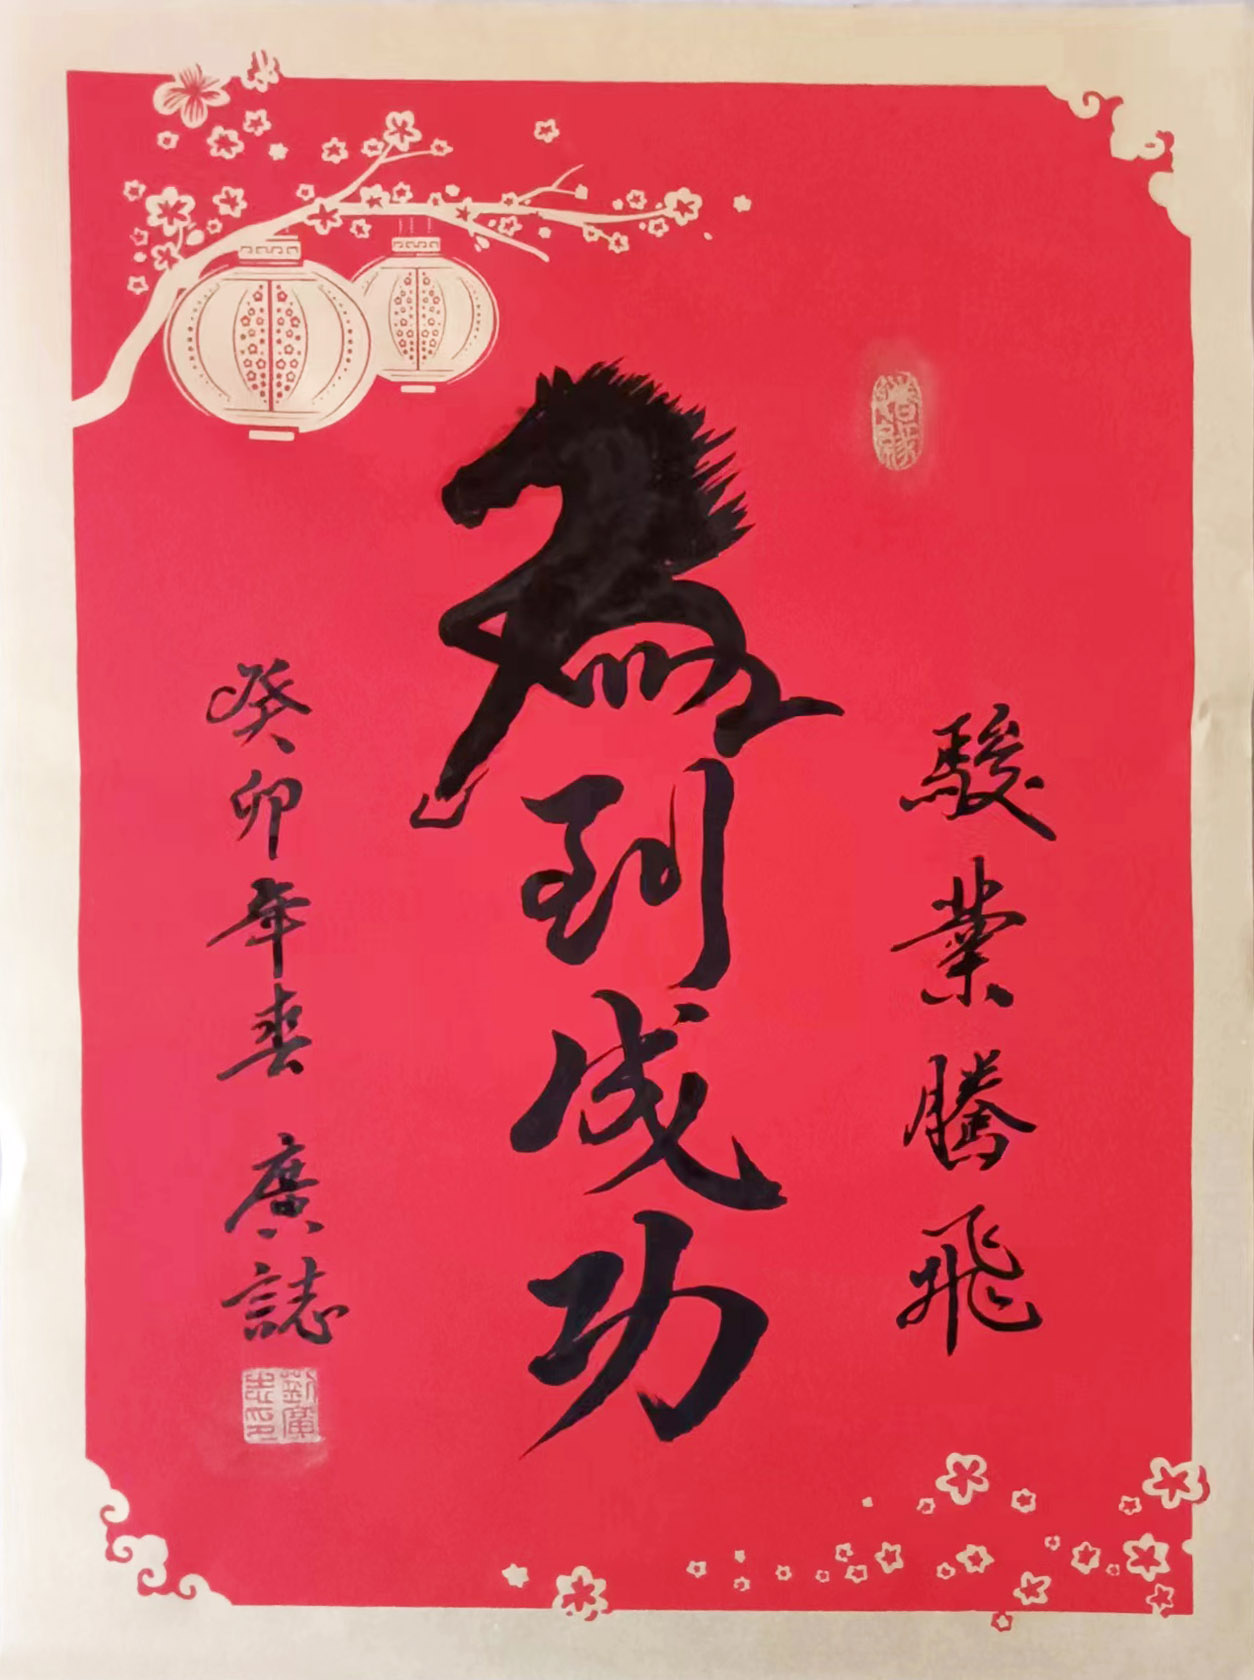 駿業騰飛
馬到成功
癸卯年春 廣誌
劉廣